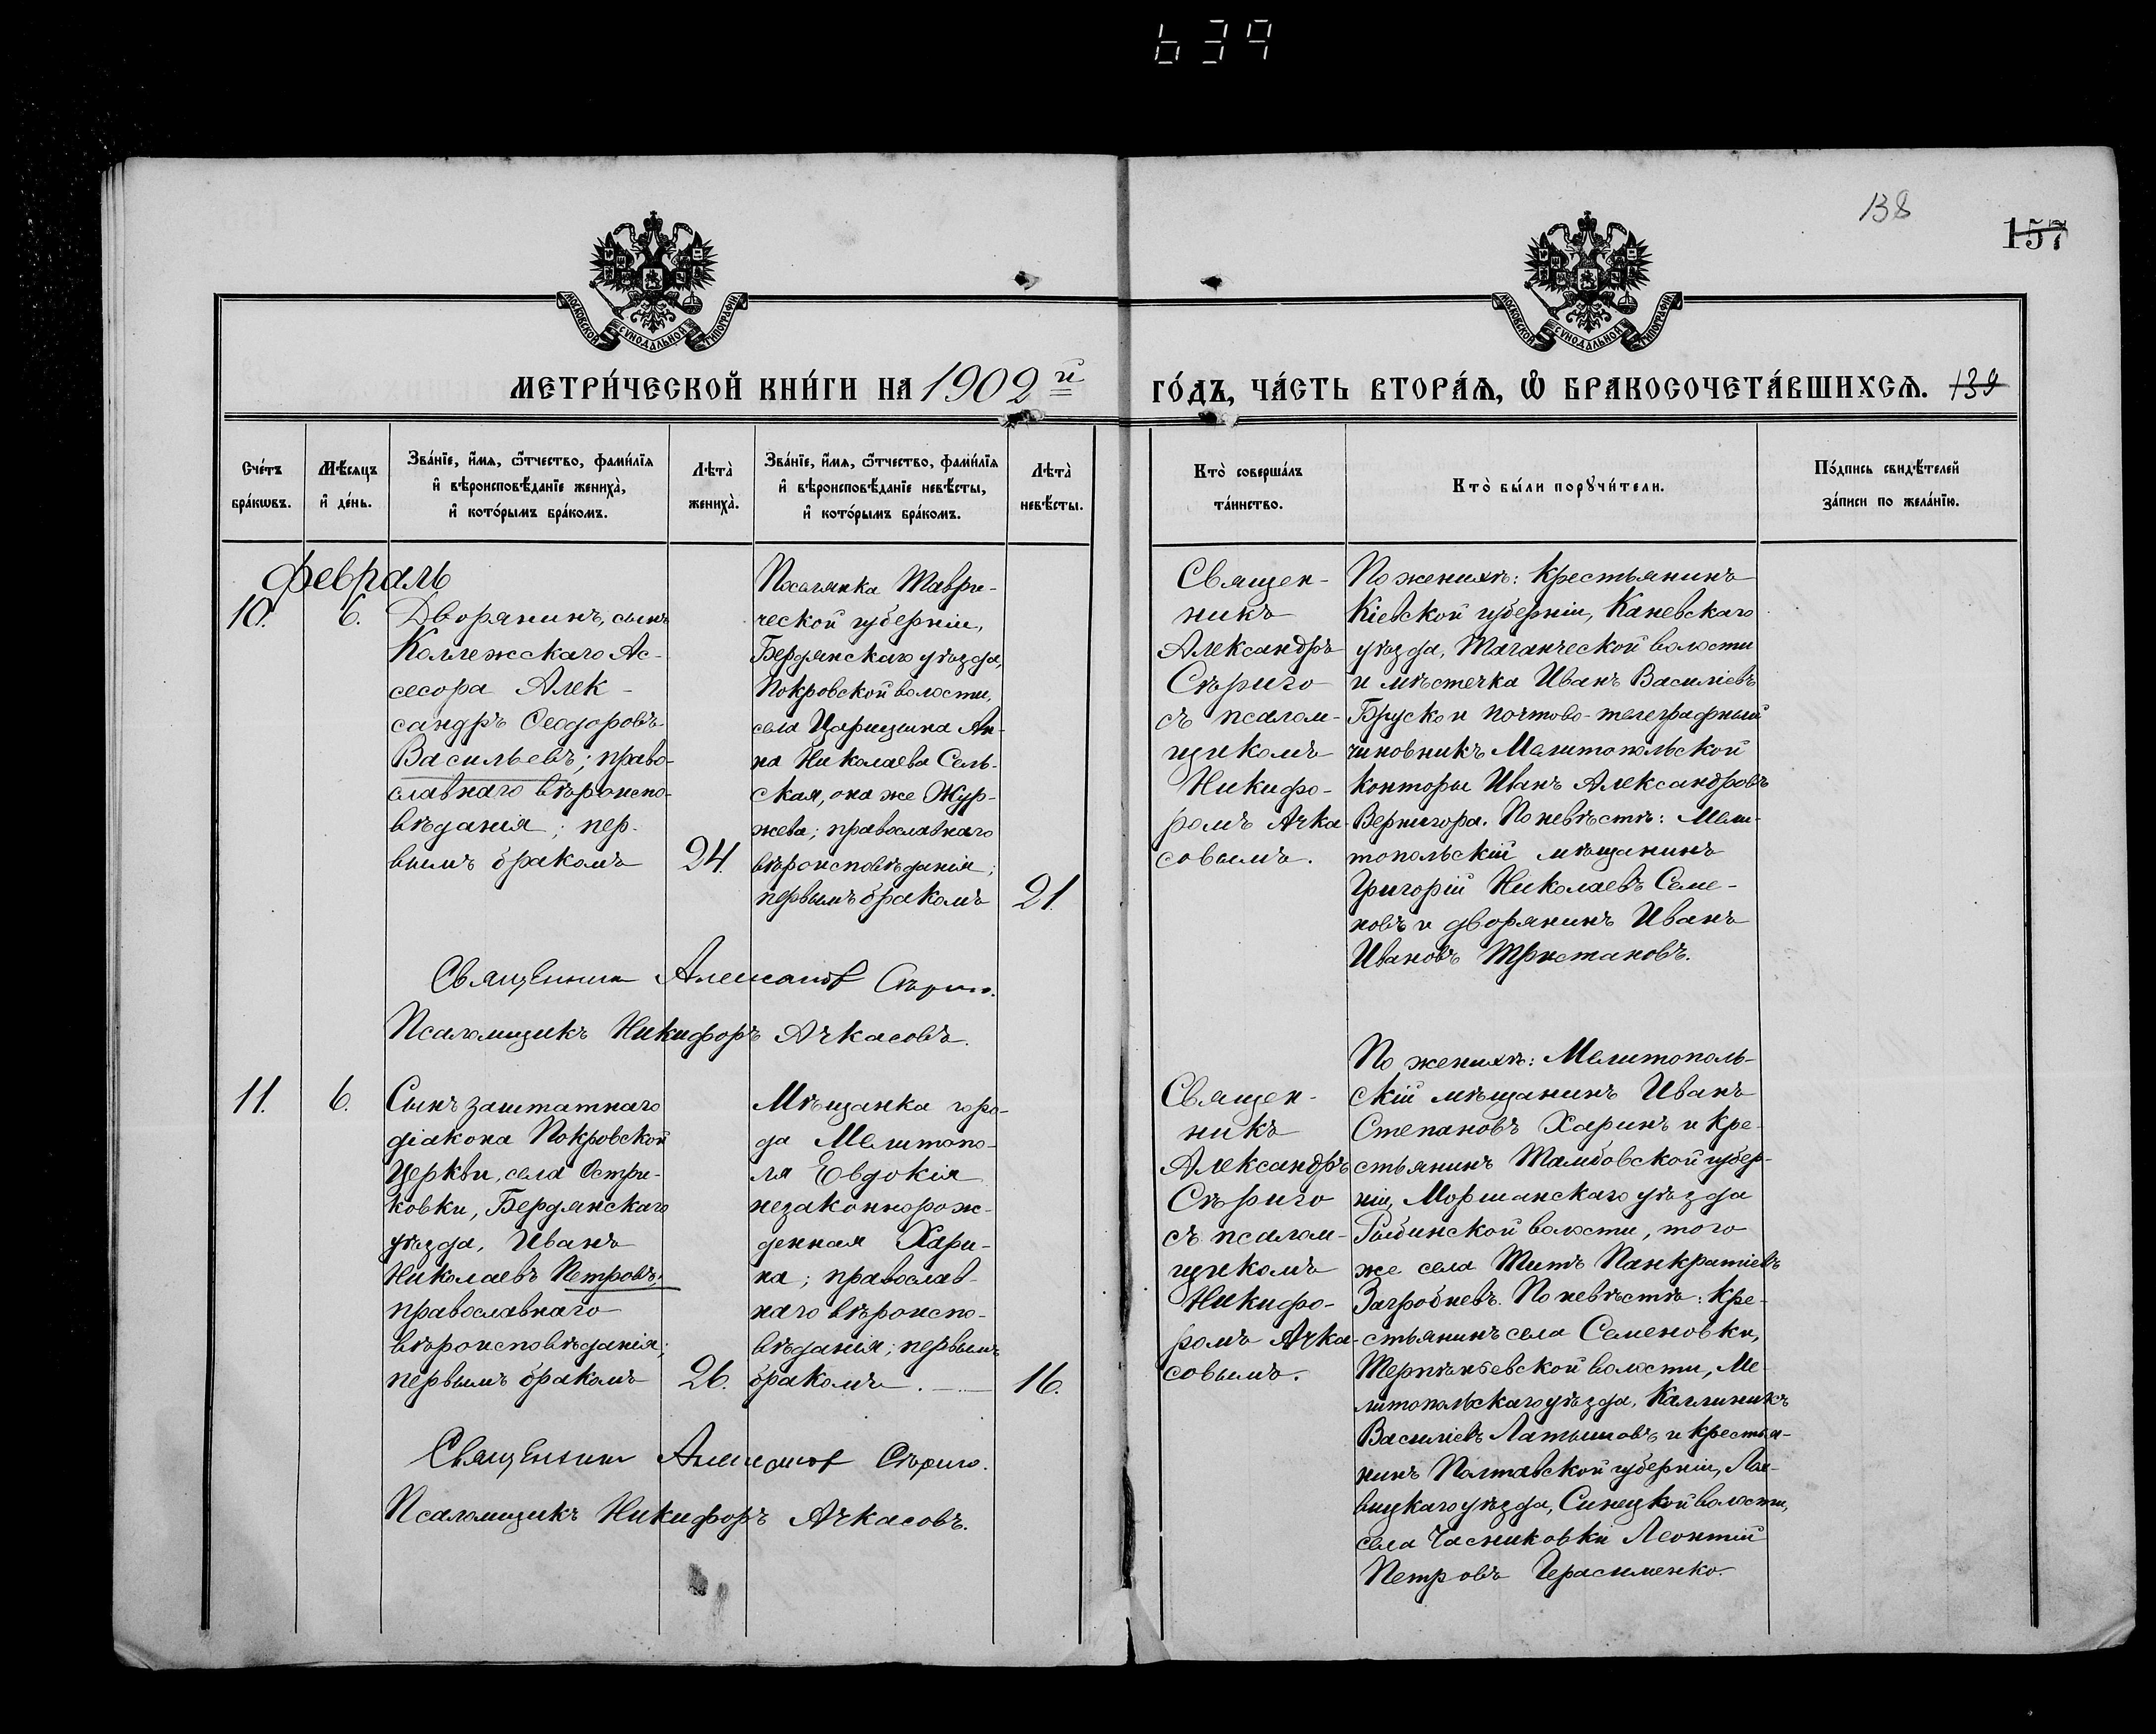 639
138
157
МОСКОВСКОЙ СѴНОДАЛЬНОЙ ТИПОГРАФІИ
МОСКОВСКОЙ СѴНОДАЛЬНОЙ ТИПОГРАФІИ
МЕТРИ́ЧЕСКОЙ КНИ́ГИ НА 1902й
ГО́ДЪ, ЧА́СТЬ ВТОРА́Ѧ, Ѡ БРАКОСОЧЕТА́ВШИХСѦ. 139
Счéтъ бра́кѡвъ.
Мѣ́сяцъ и҆ де́нь.
Зва́нїе, и҆́мѧ, ѻ҆́тчество, фами́лїѧ
и҆ вѣроисповѣ́данїе жениха̀,
и҆ кото́рымъ бра́комъ.
Лѣта̀ жениха̀.
Зва́нїе, и҆́мѧ, ѻ҆́тчество, фами́лїѧ
и҆ вѣроисповѣ́данїе невѣ́сты,
и҆ кото́рымъ бра́комъ.
Лѣта̀ невѣ́сты.
Кто̀ соверша́лъ та́инство.
Кто̀ бы́ли порꙋчи́тели.
По́дпись свидѣ́телей
за́писи по жела́нїю.
Февраль
10.
6.
Дворянинъ, сынъ
Коллежскаго Ас-
сесора Алек-
сандръ Ѳеодоровъ
Васильевъ; право-
славнаго вѣроиспо-
вѣданія; пер-
вымъ бракомъ
24.
Поселянка Таври-
ческой губерніи,
Бердянскаго уѣзда,
Покровской волости,
села Царицына Ан-
на Николаева Сель-
ская, она же Жур-
жева; православнаго
вѣроисповѣданія;
первымъ бракомъ
21.
Священ-
никъ
Александръ
Сѣриго
съ псалом-
щикомъ
Никифо-
ромъ Ачка-
совымъ.
По женихѣ: Крестьянинъ
Кіевской губерніи, Каневскаго
уѣзда, Таганческой волости
и мѣстечка Иванъ Василіевъ
Бруско и почтово-телеграфный
чиновникъ Мелитопольской
конторы Иванъ Александровъ
Вернигора. По невѣстѣ: Мели-
топольскій мѣщанинъ
Григорій Николаевъ Семе-
новъ и дворянинъ Иванъ
Ивановъ Тристановъ.
Священникъ Александръ Сѣриго.
Псаломщикъ Никифоръ Ачкасовъ.
11.
6.
Сынъ заштатнаго
діакона Покровской
Церкви, села Остри-
ковки, Бердянскаго
уѣзда, Иванъ
Николаевъ Петровъ;
православнаго
вѣроисповѣданія;
первымъ бракомъ
26.
Мѣщанка горо-
да Мелитопо-
ля Евдокія
незаконнорож-
денная Хари-
на; православ-
наго вѣроиспо-
вѣданія; первымъ
бракомъ.
16.
Священ-
никъ
Александръ
Сѣриго
съ псалом-
щикомъ
Никифо-
ромъ Ачка-
совымъ.
По женихѣ: Мелитополь-
скій мѣщанинъ Иванъ
Степановъ Харинъ и кре-
стьянинъ Тамбовской губер-
ніи, Моршанскаго уѣзда
Рыбинской волости, того
же села Титъ Панкратіевъ
Загробневъ. По невѣстѣ: кре-
стьянинъ села Семеновки,
Терпѣньевской волости, Ме-
литопольскаго уѣзда, Каллиникъ
Василіевъ Латышовъ и крестья-
нинъ Полтавской губерніи, Лох-
вицкаго уѣзда, Синецкой волости,
села Часниковки Леонтій
Петровъ Герасименко.
Священникъ Александръ Сѣриго.
Псаломщикъ Никифоръ Ачкасовъ.